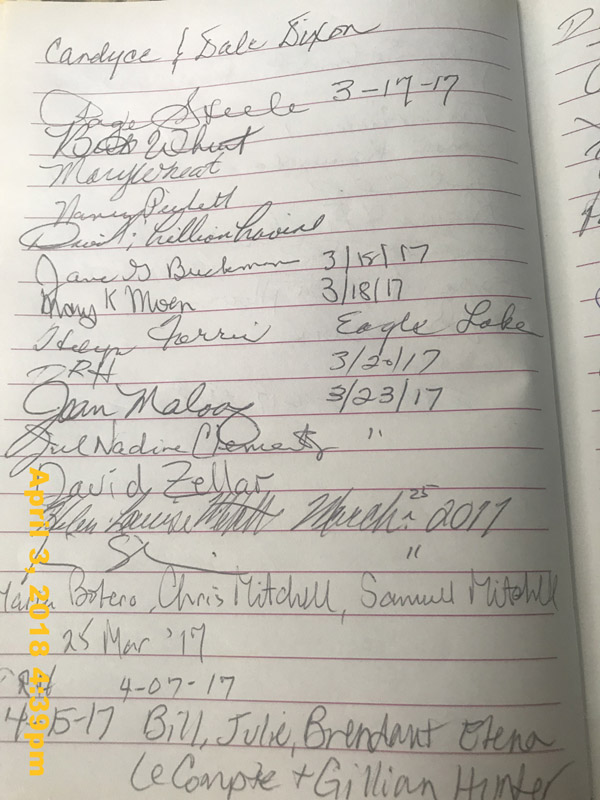 Candyce & Dale Dixon
Page Steele 3-17-17
Bob Wheat
Mary Wheat
Nancy
David & Lillian
Jane G Buckman 3/18/17
Mary K Moen 3/18/17
Ferris Eagle Lake
DRH 3/20/17
Joan Maloay 3/23/17
Nadine Clements "
David Zellar
Helen Louise March 25 2017
"
Botero, Chris Mitchell, Samuel Mitchell
25 Mar '17
DRH 4-07-17
4-15-17 Bill, Julie, Brendan + Elena
LeCompte + Gillian Hunter
April 3, 2018 4:39pm